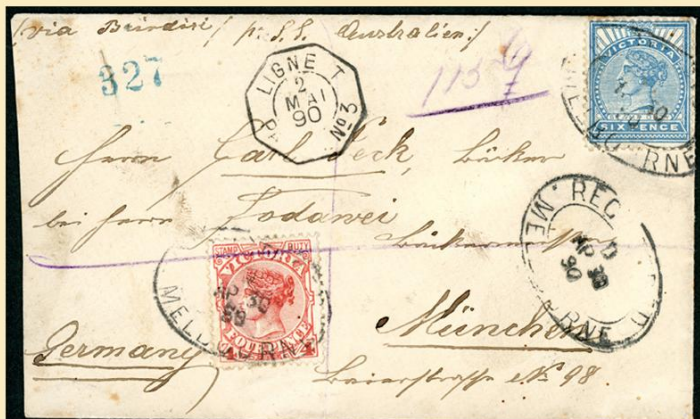 /via Brindisi/ pr. S.S. Australien/
327
LIGNE T
2
MAI
90
PAQ
Nº 3
VICTORIA
SIX PENCE
MELBOURNE
Herrn Carl Jeck, Bäcker
bei Herrn
REG
MELBOURNE
AP 30
90
STAMP DUTY
VICTORIA
FOURPENCE
MELBOURNE
AP 30
München
Germany
Baierstrasse No. 98.